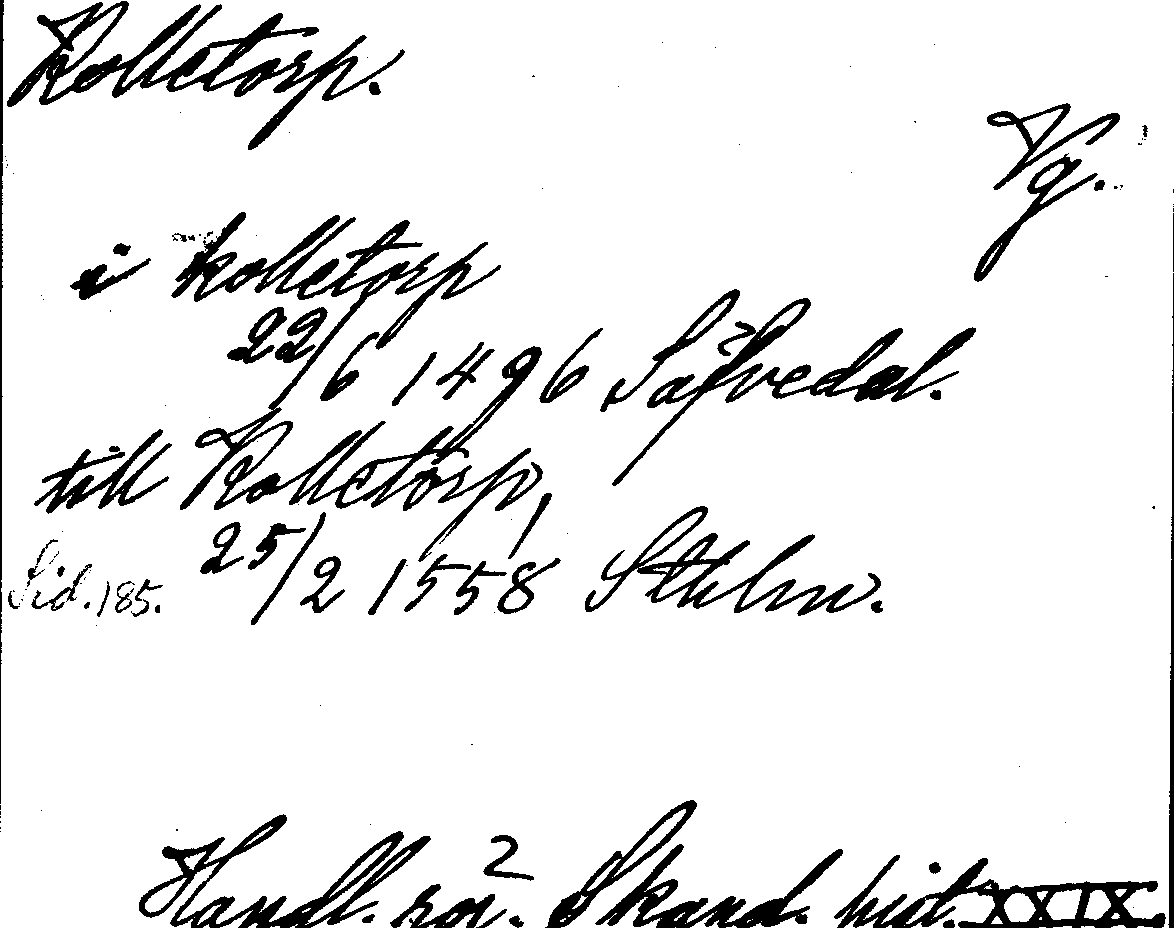 Kolletorp.
Vg.
i kolletorp
22/6 1496 Säfvedal.
till Kolletorp,
25/2 1558 Sthlm.
Sid. 185.
2
Handl. rör. Skand. hist. XXIX.